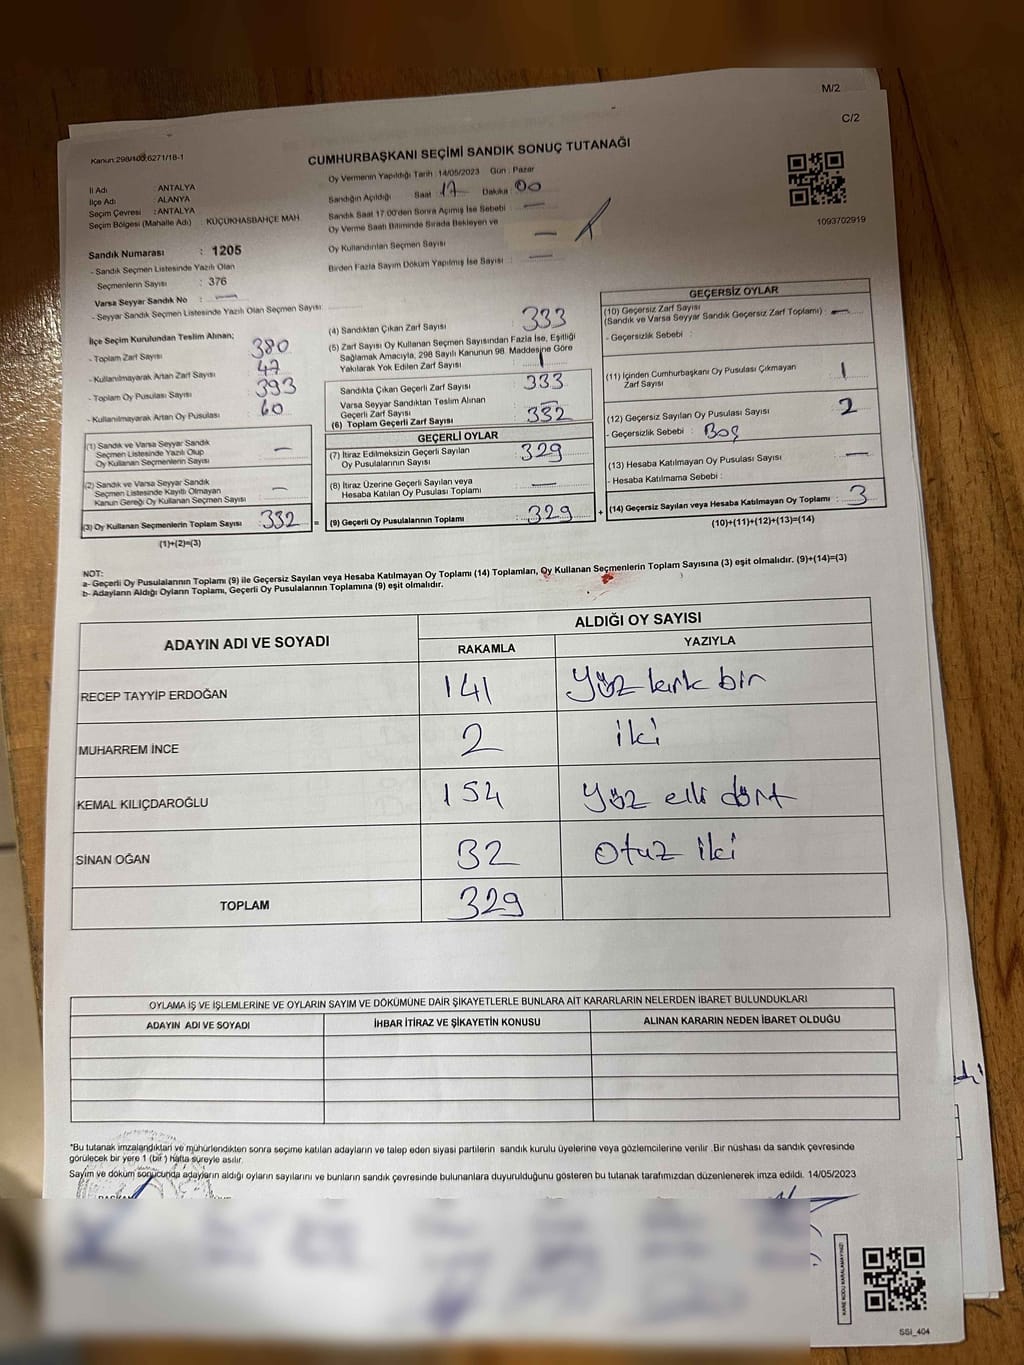 M/2
C/2
Kanun:298/103,6271/18-1
CUMHURBAŞKANI SEÇİMİ SANDIK SONUÇ TUTANAĞI
İl Adı : ANTALYA
İlçe Adı : ALANYA
Seçim Çevresi : ANTALYA
Seçim Bölgesi (Mahalle Adı) : KÜÇÜKHASBAHÇE MAH.
Oy Vermenin Yapıldığı Tarih : 14/05/2023 Gün : Pazar
Sandığın Açıldığı Saat : 17 Dakika : 00
Sandık Saat 17:00'den Sonra Açımış İse Sebebi : —
Oy Verme Saati Bitiminde Sırada Bekleyen ve
Oy Kullandırılan Seçmen Sayısı —
Birden Fazla Sayım Döküm Yapılmış İse Sayısı : —
1093702919
Sandık Numarası : 1205
- Sandık Seçmen Listesinde Yazılı Olan
Seçmenlerin Sayısı : 376
Varsa Seyyar Sandık No : —
- Seyyar Sandık Seçmen Listesinde Yazılı Olan Seçmen Sayısı:
İlçe Seçim Kurulundan Teslim Alınan;
- Toplam Zarf Sayısı : 380
- Kullanılmayarak Artan Zarf Sayısı : 47
- Toplam Oy Pusulası : 393
- Kullanılmayarak Artan Oy Pusulası : 60
(1) Sandık ve Varsa Seyyar Sandık
Seçmen Listesinde Yazılı Olup
Oy Kullanan Seçmenlerin Sayısı : —
(2) Sandık ve Varsa Seyyar Sandık
Seçmen Listesinde Kayıtlı Olmayan
Kanun Gereği Oy Kullanan Seçmen Sayısı : —
(3) Oy Kullanan Seçmenlerin Toplam Sayısı : 332 =
(1)+(2)=(3)
(4) Sandıktan Çıkan Zarf Sayısı : 333
(5) Zarf Sayısı Oy Kullanan Seçmen Sayısından Fazla İse, Eşitliği
Sağlamak Amacıyla, 298 Sayılı Kanunun 98. Maddesine Göre
Yakılarak Yok Edilen Zarf Sayısı : 1
Sandıkta Çıkan Geçerli Zarf Sayısı : 333
Varsa Seyyar Sandıktan Teslim Alınan
Geçerli Zarf Sayısı : —
(6) Toplam Geçerli Zarf Sayısı : 332
GEÇERLİ OYLAR
(7) İtiraz Edilmeksizin Geçerli Sayılan
Oy Pusulalarının Sayısı : 329
(8) İtiraz Üzerine Geçerli Sayılan veya
Hesaba Katılan Oy Pusulası Toplamı : —
(9) Geçerli Oy Pusulalarının Toplamı : 329 +
GEÇERSİZ OYLAR
(10) Geçersiz Zarf Sayısı
(Sandık ve Varsa Seyyar Sandık Geçersiz Zarf Toplamı) : —
- Geçersizlik Sebebi :
(11) İçinden Cumhurbaşkanı Oy Pusulası Çıkmayan
Zarf Sayısı : 1
(12) Geçersiz Sayılan Oy Pusulası Sayısı : 2
- Geçersizlik Sebebi : Boş
(13) Hesaba Katılmayan Oy Pusulası Sayısı : —
- Hesaba Katılmama Sebebi :
(14) Geçersiz Sayılan veya Hesaba Katılmayan Oy Toplamı : 3
(10)+(11)+(12)+(13)=(14)
NOT:
a- Geçerli Oy Pusulalarının Toplamı (9) ile Geçersiz Sayılan veya Hesaba Katılmayan Oy Toplamı (14) Toplamları, Oy Kullanan Seçmenlerin Toplam Sayısına (3) eşit olmalıdır. (9)+(14)=(3)
b- Adayların Aldığı Oyların Toplamı, Geçerli Oy Pusulalarının Toplamına (9) eşit olmalıdır.
ADAYIN ADI VE SOYADI
ALDIĞI OY SAYISI
RAKAMLA YAZIYLA
RECEP TAYYİP ERDOĞAN 141 Yüz kırk bir
MUHARREM İNCE 2 iki
KEMAL KILIÇDAROĞLU 154 Yüz elli dört
SİNAN OĞAN 32 otuz iki
TOPLAM 329
OYLAMA İŞ VE İŞLEMLERİNE VE OYLARIN SAYIM VE DÖKÜMÜNE DAİR ŞİKAYETLERLE BUNLARA AİT KARARLARIN NELERDEN İBARET BULUNDUKLARI
ADAYIN ADI VE SOYADI İHBAR İTİRAZ VE ŞİKAYETİN KONUSU ALINAN KARARIN NEDEN İBARET OLDUĞU
*Bu tutanak imzalandıktan ve mühürlendikten sonra seçime katılan adayların ve talep eden siyasi partilerin sandık kurulu üyelerine veya gözlemcilerine verilir. Bir nüshası da sandık çevresinde
görülecek bir yere 1 (bir) hafta süreyle asılır.
Sayım ve döküm sonucunda adayların aldığı oyların sayılarını ve bunların sandık çevresinde bulunanlara duyurulduğunu gösteren bu tutanak tarafımızdan düzenlenerek imza edildi. 14/05/2023
KARE KODU KARALAMAYINIZ!
SSI_404